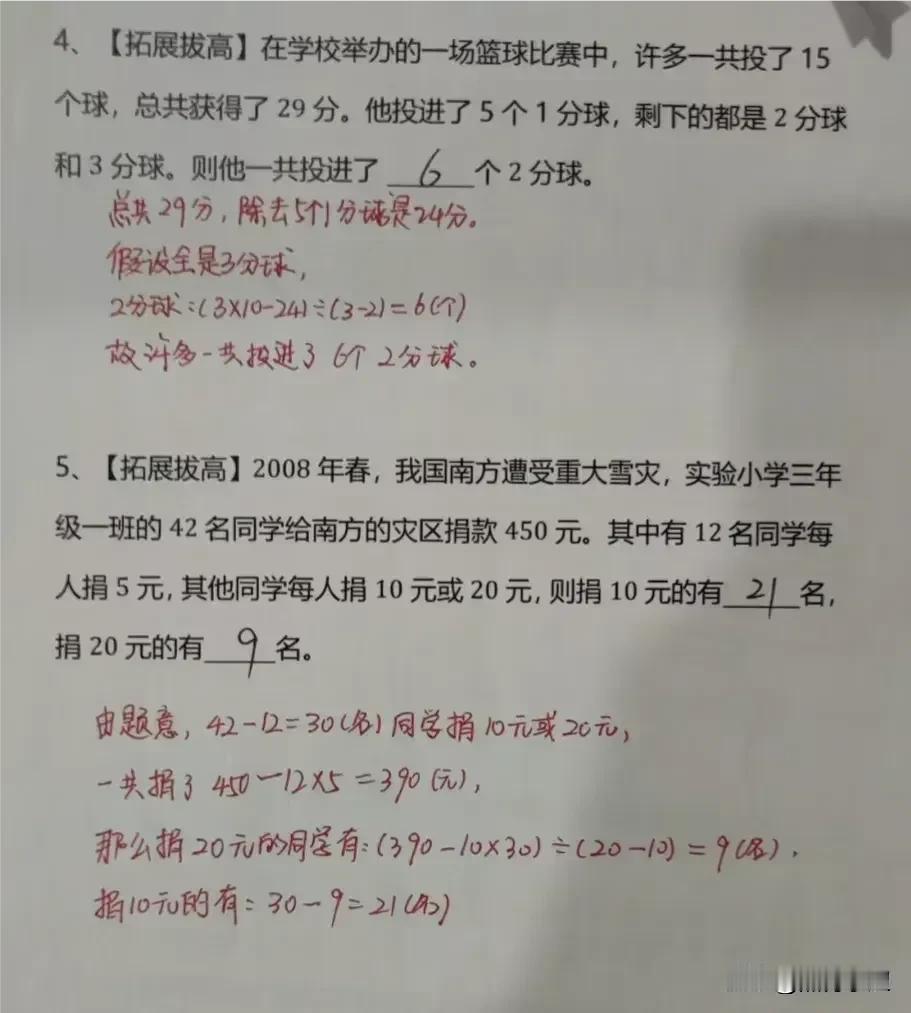 4、【拓展拔高】在学校举办的一场篮球比赛中，许多一共投了 15
个球，总共获得了 29 分。他投进了 5 个 1 分球，剩下的都是 2 分球
和 3 分球。则他一共投进了 6 个 2 分球。
总共29分，除去5个1分球是24分。
假设全是3分球，
2分球：(3×10-24)÷(3-2)=6(个)
故许多一共投进了 6个 2分球。
5、【拓展拔高】2008 年春，我国南方遭受重大雪灾，实验小学三年
级一班的 42 名同学给南方的灾区捐款 450 元。其中有 12 名同学每
人捐 5 元，其他同学每人捐 10 元或 20 元，则捐 10 元的有 21 名，
捐 20 元的有 9 名。
由题意，42-12=30(名)同学捐10元或20元，
一共捐了 450-12×5=390(元)，
那么捐20元的同学有：(390-10×30)÷(20-10)=9(名)．
捐10元的有：30-9=21(名)